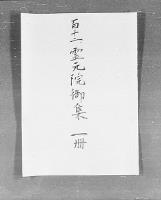 百十二霊元院御集 一冊